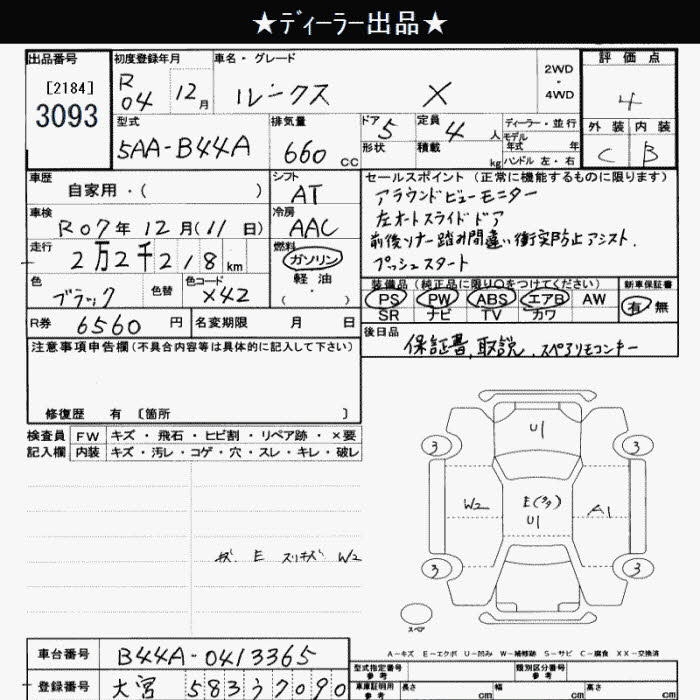 ★ディーラー出品★
出品番号 初度登録年月 車名・グレード 2WD ・ 4WD 評価点
[2184] 3093 R04 12月 ルークス X 4
型式 排気量 ドア 5 定員 4人 ディーラー・並行 外装 内装
モデル年式 年
5AA-B44A 660 CC 形状 積載 kg ハンドル 左・右 C B
車歴 シフト セールスポイント (正常に機能するものに限ります)
自家用・( ) AT アラウンドビューモニター
車検 冷房 左オートスライドドア
R07年12月(11日) AAC 前後ソナー 踏み間違い衝突防止アシスト.
走行 燃料 プッシュスタート
2万2千218km ガソリン
軽油
・( )
色 色替 色コード 装備品 (純正品に限り○をつけてください) 新車保証書
ブラック X42 PS PW ABS エアB AW 有 無
SR ナビ TV カワ
R券 6560円 名変期限 月 日 後日品
保証書, 取説, スペアリモコンキー
注意事項申告欄(不具合内容等は具体的に記入して下さい)
修復歴 有 〔箇所 〕
検査員 FW キズ・飛石・ヒビ割・リペア跡・×要
記入欄 内装 キズ・汚レ・コゲ・穴・スレ・キレ・破レ
U1
3 3
W2 E(3/9) A1
U1
E スリキズ W2
3 3
スペア
A-キズ E-エクボ U-凹み W-補修跡 S-サビ C-腐食 XX-交換済
車台番号 B44A-0413365 型式指定番号 参考 類別区分番号 参考
登録番号 大宮 583う7090 車庫証明用 参考 長さ cm 幅 cm 高さ cm